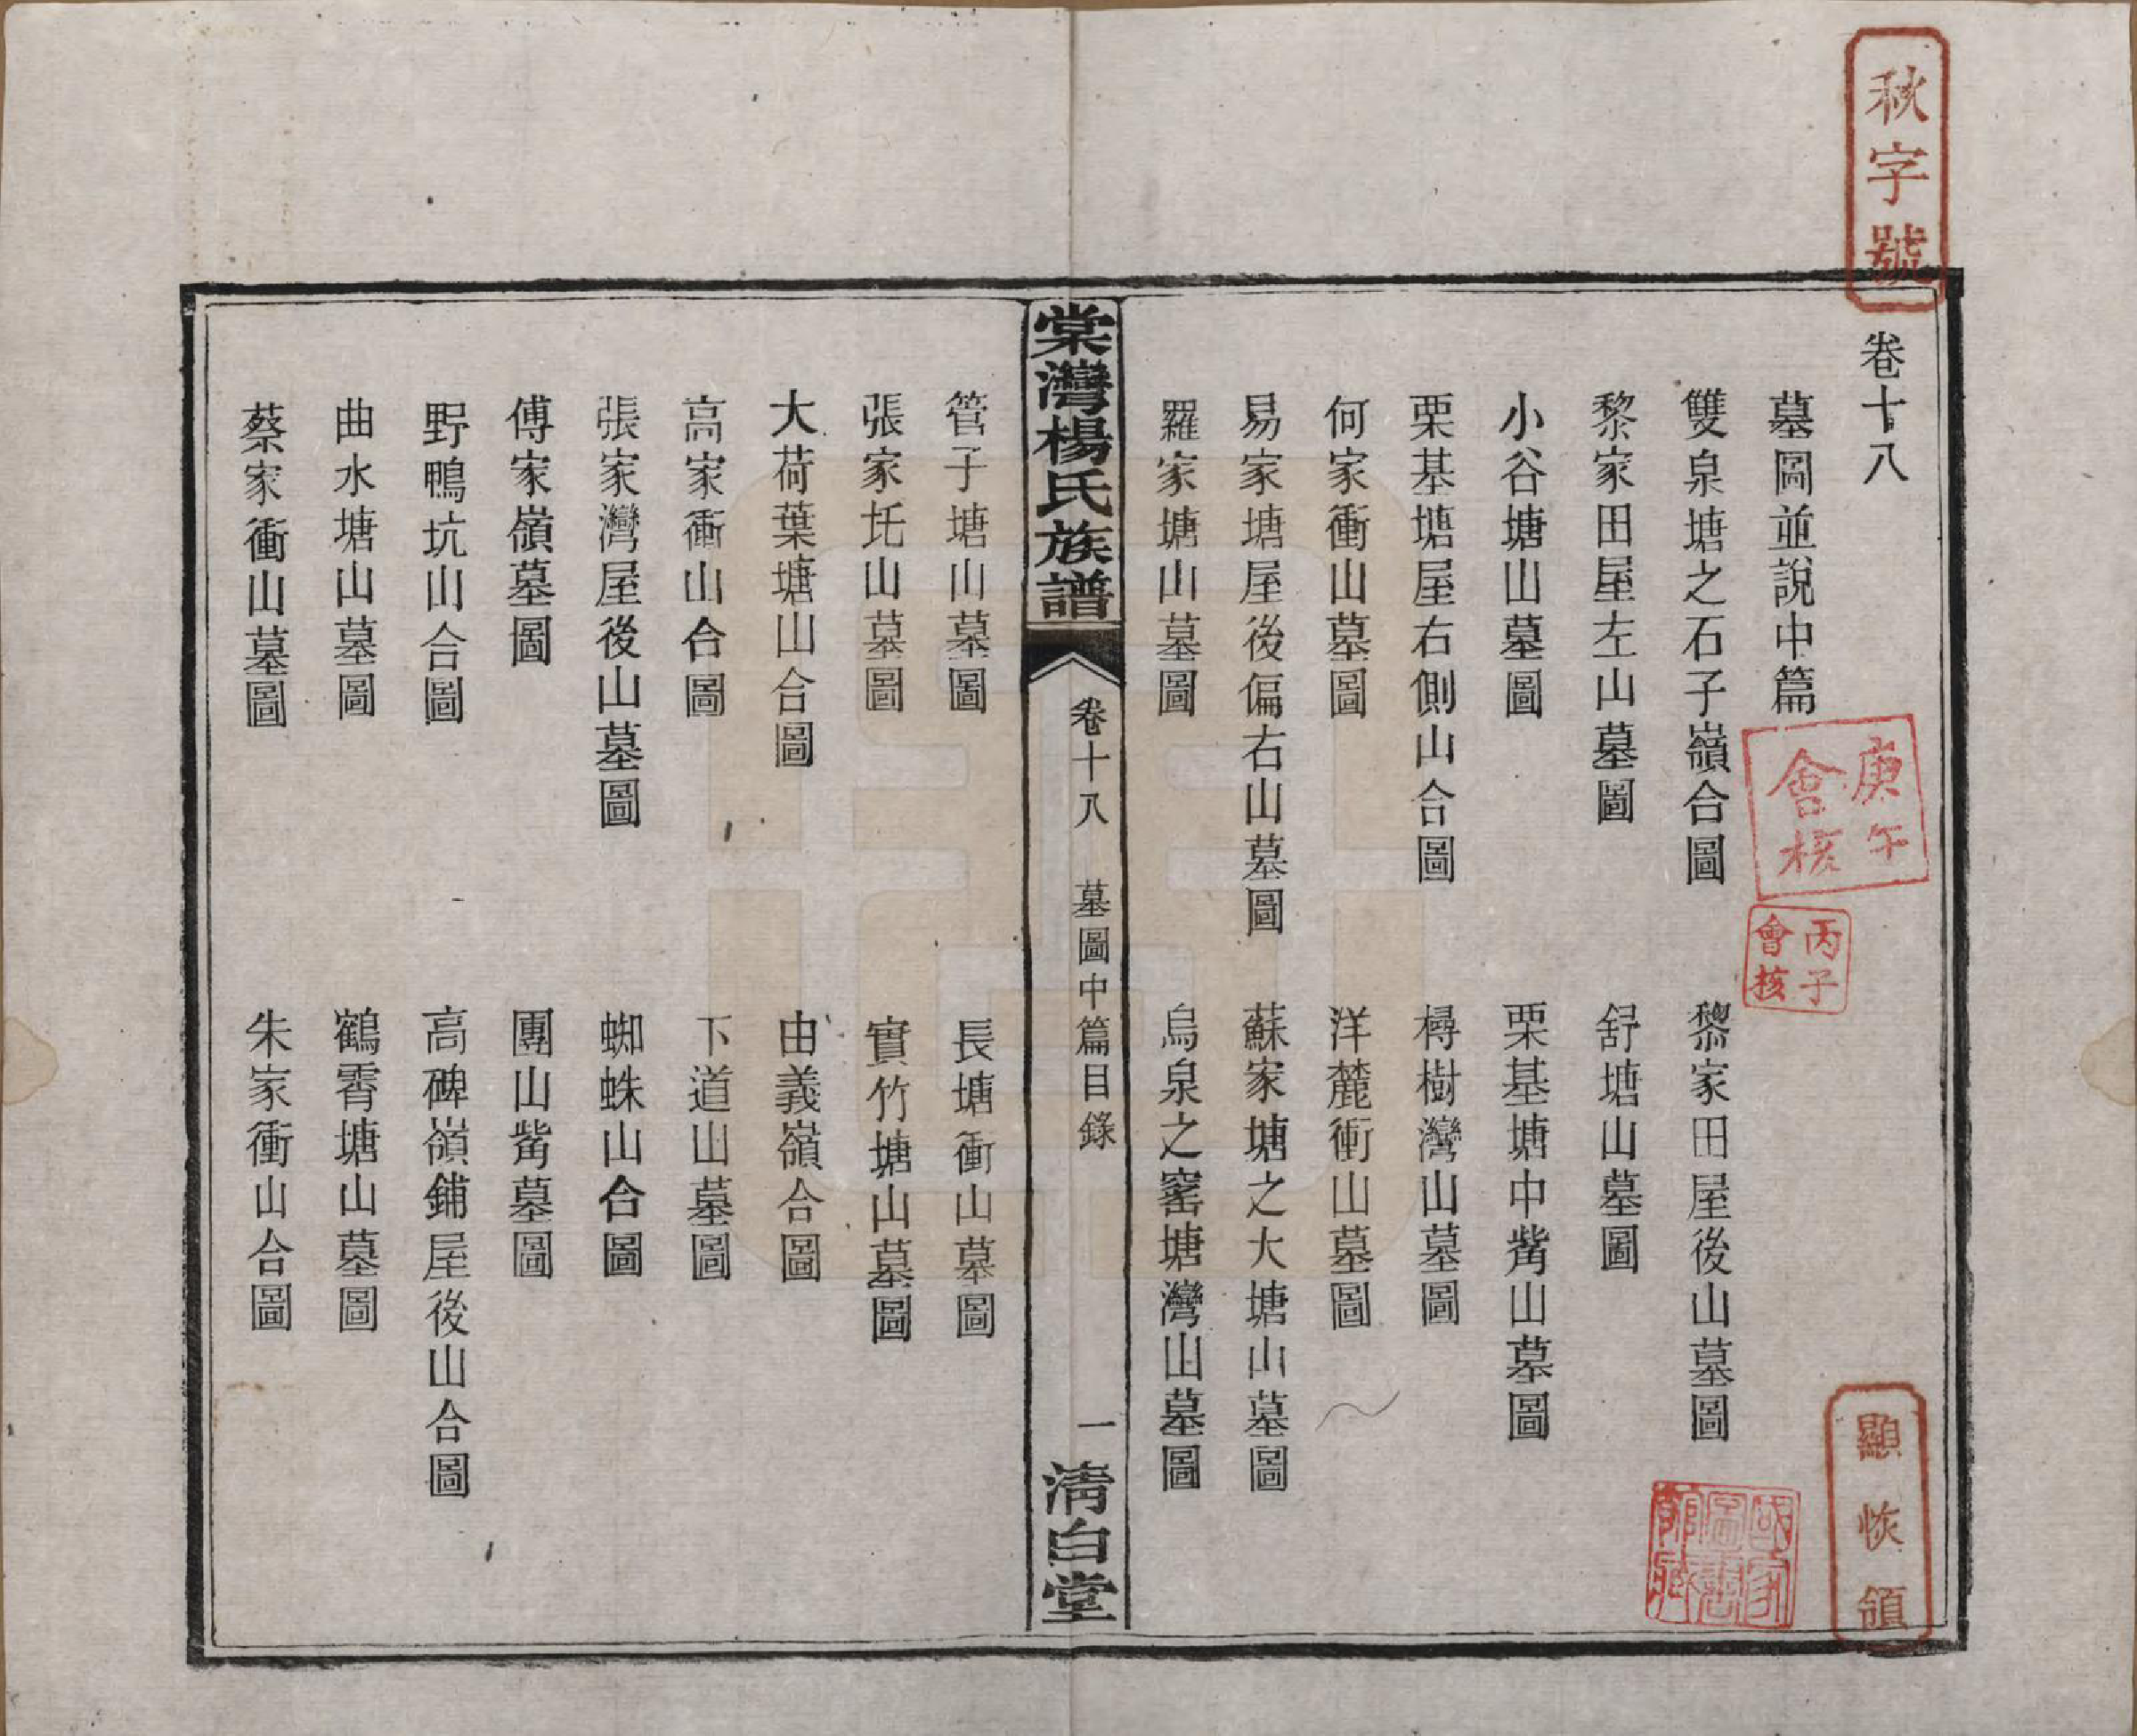 秋字號
卷十八
墓圖並說中篇
雙泉塘之石子嶺合圖
黎家田屋後山墓圖
黎家田屋左山墓圖
舒塘山墓圖
小谷塘山墓圖
栗基塘中觜山墓圖
栗基塘屋右側山合圖
樳樹灣山墓圖
何家衝山墓圖
洋麓衝山墓圖
易家塘屋後偏右山墓圖
蘇家塘之大塘山墓圖
羅家塘山墓圖
烏泉之窰塘灣山墓圖
庚午會核
丙子會核
顯恢領
國家圖書館藏
棠灣楊氏族譜
卷十八
墓圖中篇目錄
一
清白堂
管子塘山墓圖
長塘衝山墓圖
張家圫山墓圖
實竹塘山墓圖
大荷葉塘山合圖
由義嶺合圖
高家衝山合圖
下道山墓圖
張家灣屋後山墓圖
蜘蛛山合圖
傅家嶺墓圖
團山觜墓圖
野鴨坑山合圖
高碑嶺鋪屋後山合圖
曲水塘山墓圖
鶴霄塘山墓圖
蔡家衝山墓圖
朱家衝山合圖